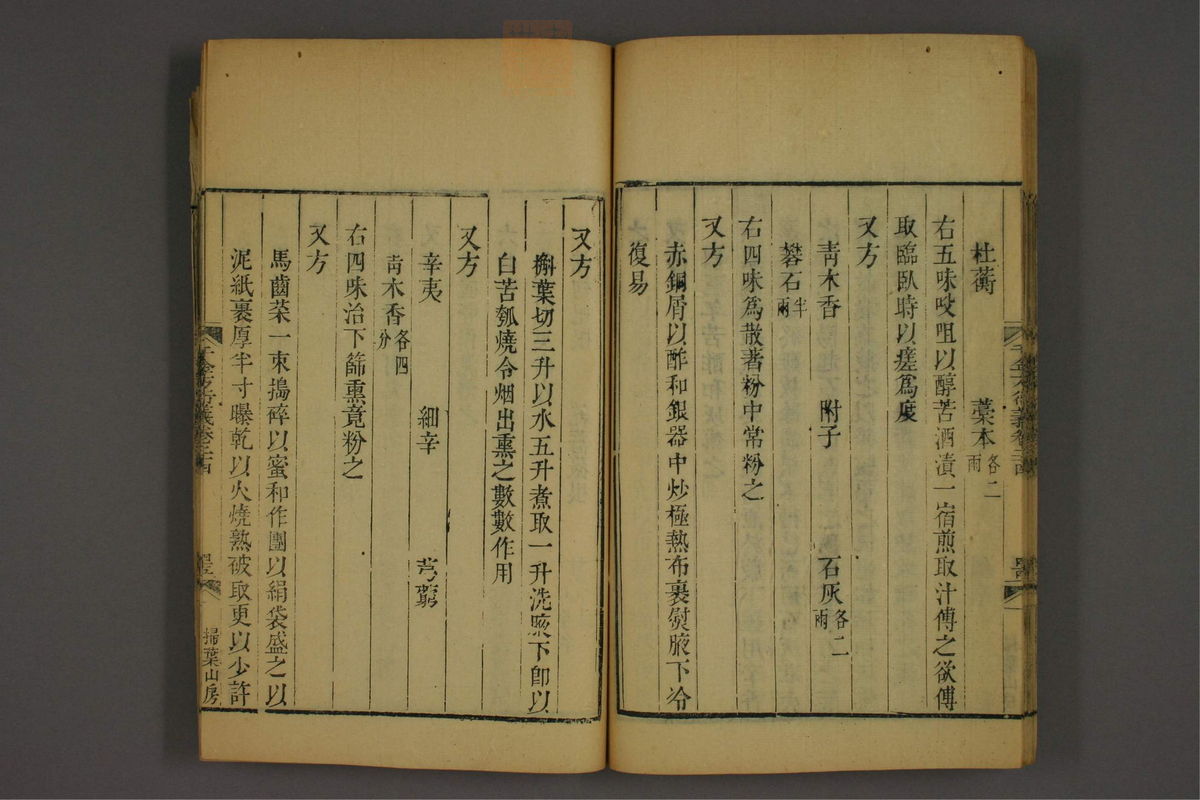 杜蘅　藁本各二兩
右五味㕮咀以醇苦酒漬一宿煎取汁傅之欲傅
取臨臥時以瘥爲度
又方
青木香　附子　石灰各二兩
礬石半兩
右四味爲散著粉中常粉之
又方
赤銅屑以酢和銀器中炒極熱布裹熨腋下冷
復易
又方
槲葉切三升以水五升煮取一升洗腋下卽以
白苦瓠燒令烟出熏之數數作用
又方
辛夷　細辛　芎藭
青木香各四分
右四味治下篩熏竟粉之
又方
馬齒菜一束搗碎以蜜和作團以絹袋盛之以
泥紙裹厚半寸曝乾以火燒熟破取更以少許
千金方衍義卷二十四
掃葉山房